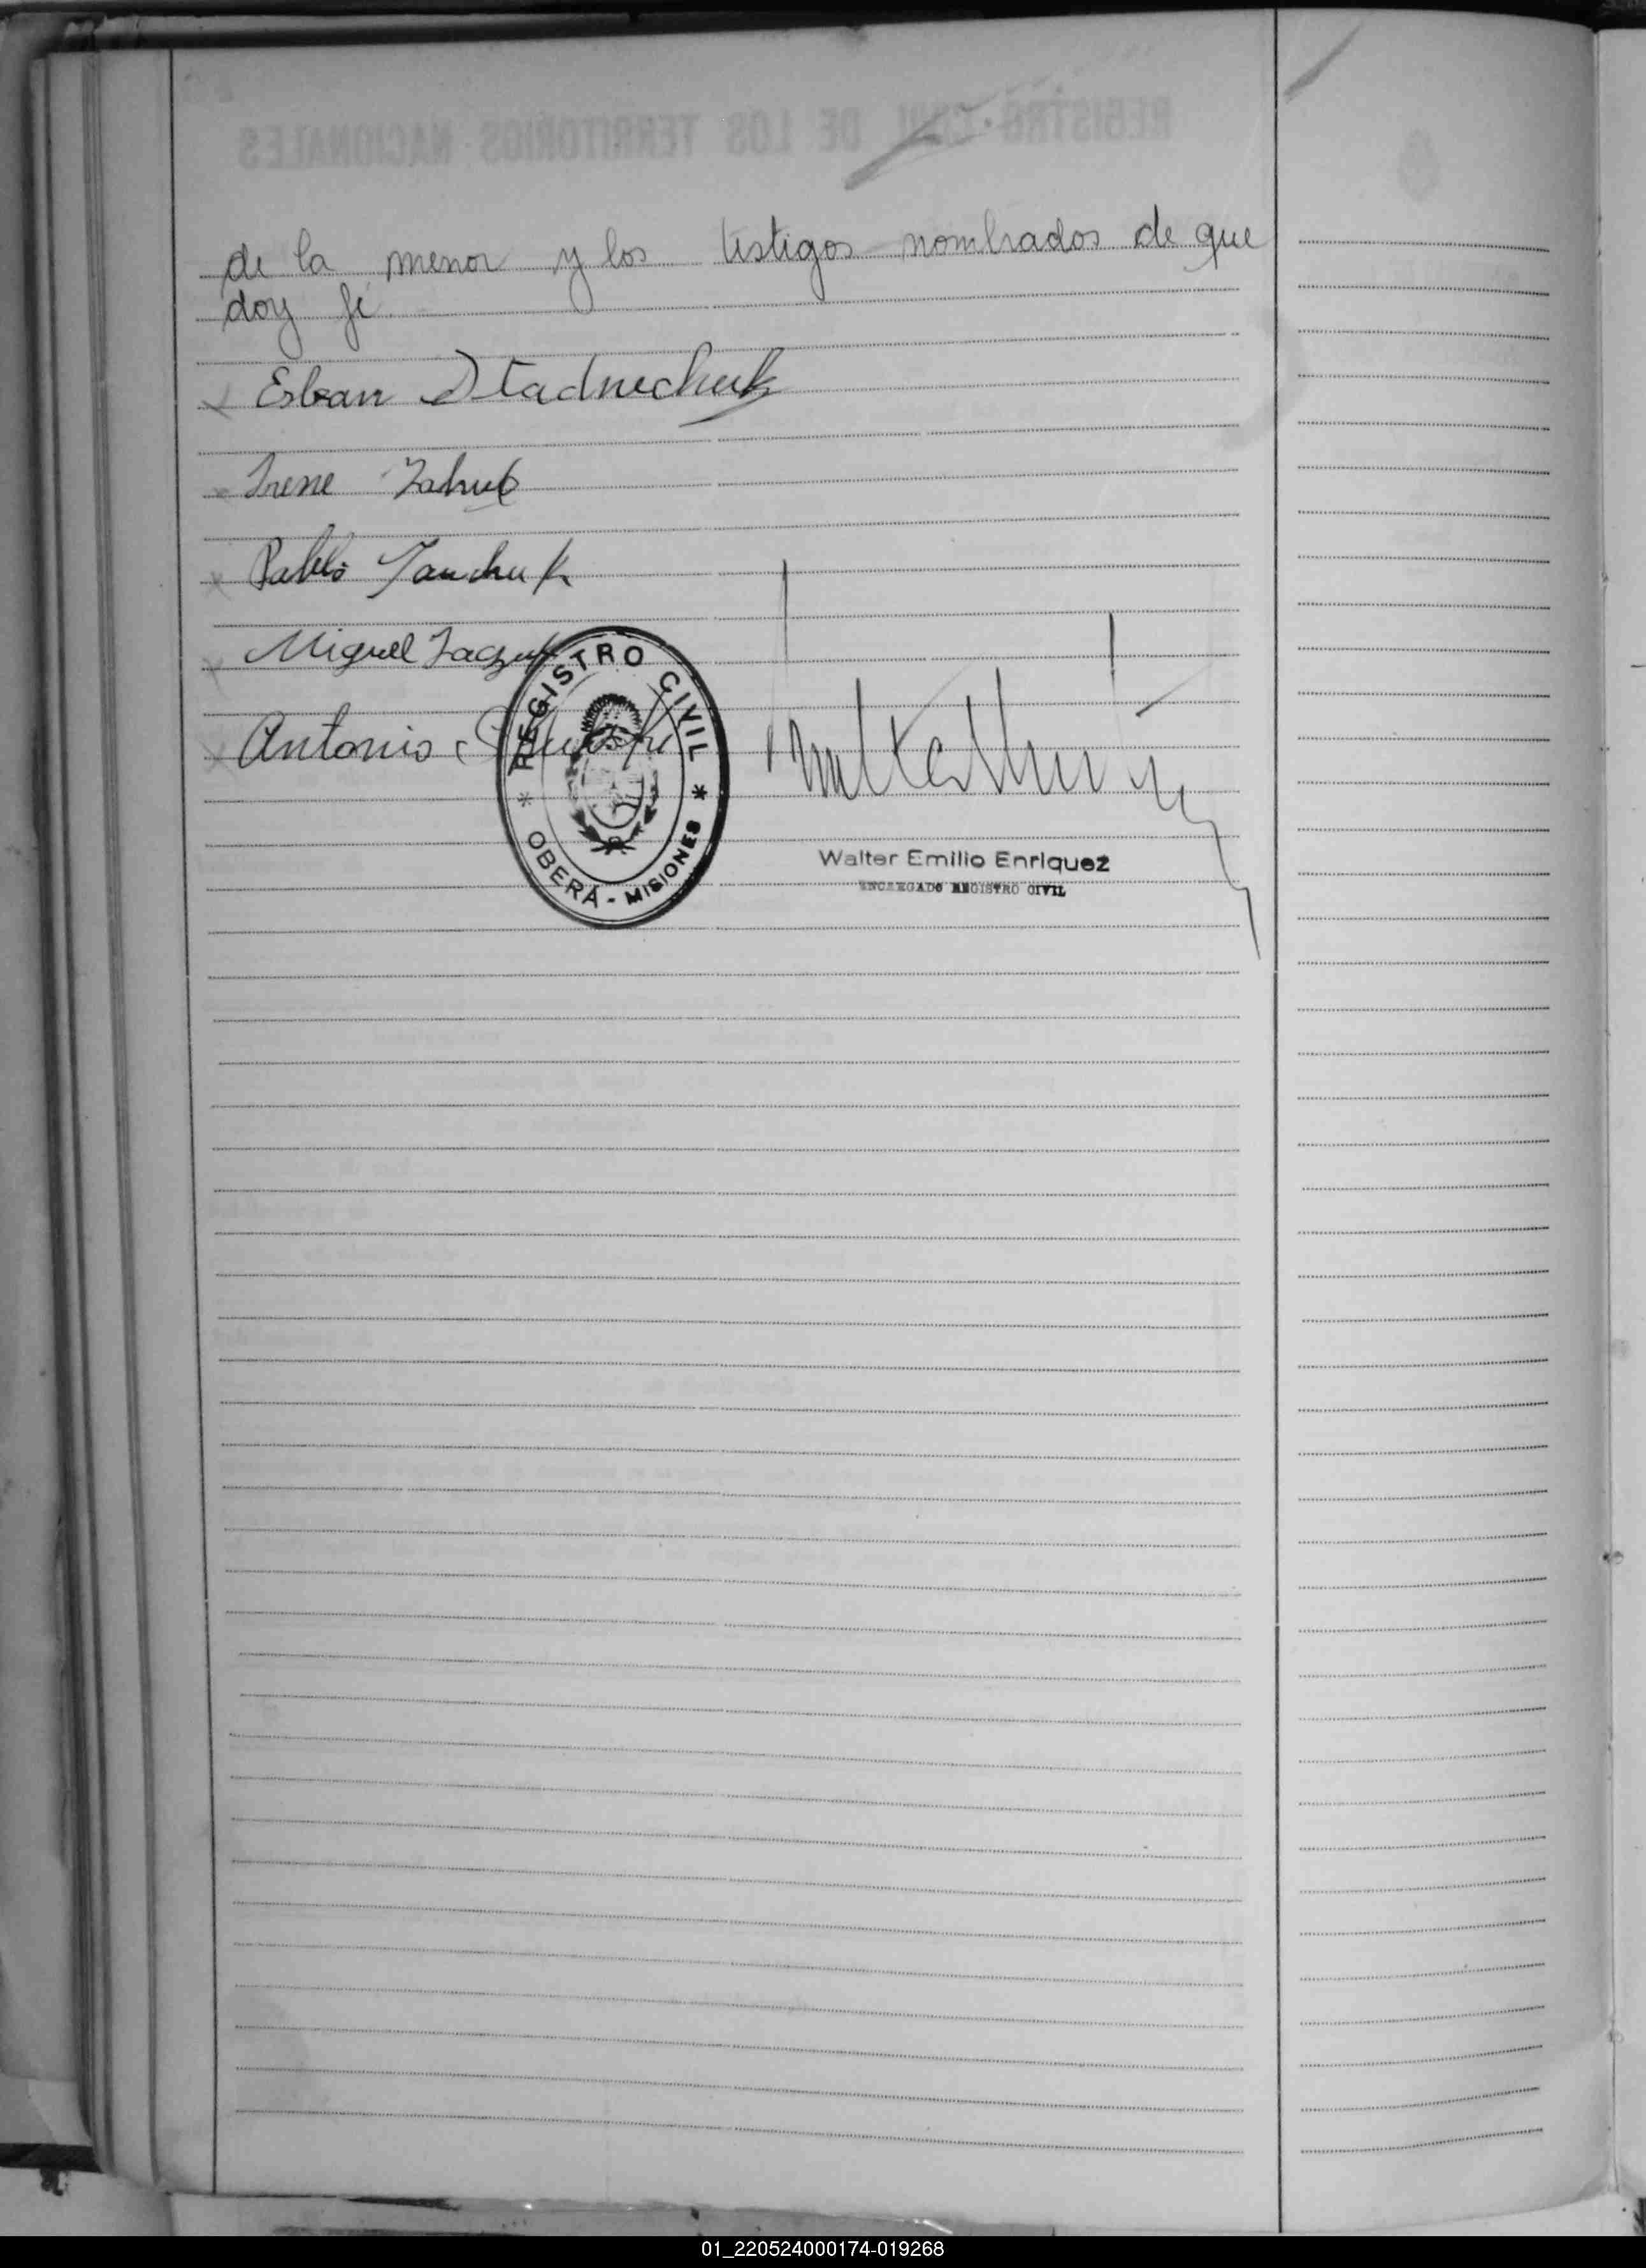 de la menor y los testigos nombrados de que
doy fé.
Esteban Stadnechuk
Irene
Pablo Janchuk
Miguel
Antonio
REGISTRO CIVIL
* OBERÁ - MISIONES *
Walter Emilio Enriquez
ENCARGADO REGISTRO CIVIL
01_220524000174-019268